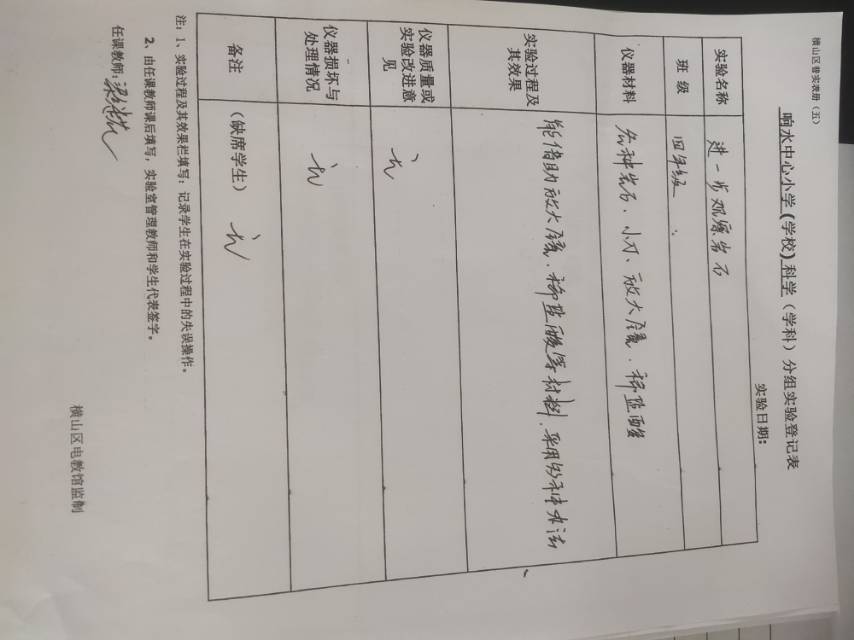 横山区普实表册(五)
响水中心小学(学校)科学(学科)分组实验登记表
实验日期:
实验名称 进一步观察岩石
班级 四年级
仪器材料 各种岩石、小刀、放大镜、稀盐酸
实验过程及其效果 能借助放大镜、稀盐酸等材料,采用多种方法
仪器质量或实验改进意见 无
仪器损坏与处理情况 无
备注 (缺席学生) 无
注:1、实验过程及其效果栏填写:记录学生在实验过程中的失误操作。
2、由任课教师课后填写,实验室管理教师和学生代表签字。
任课教师:
横山区电教馆监制